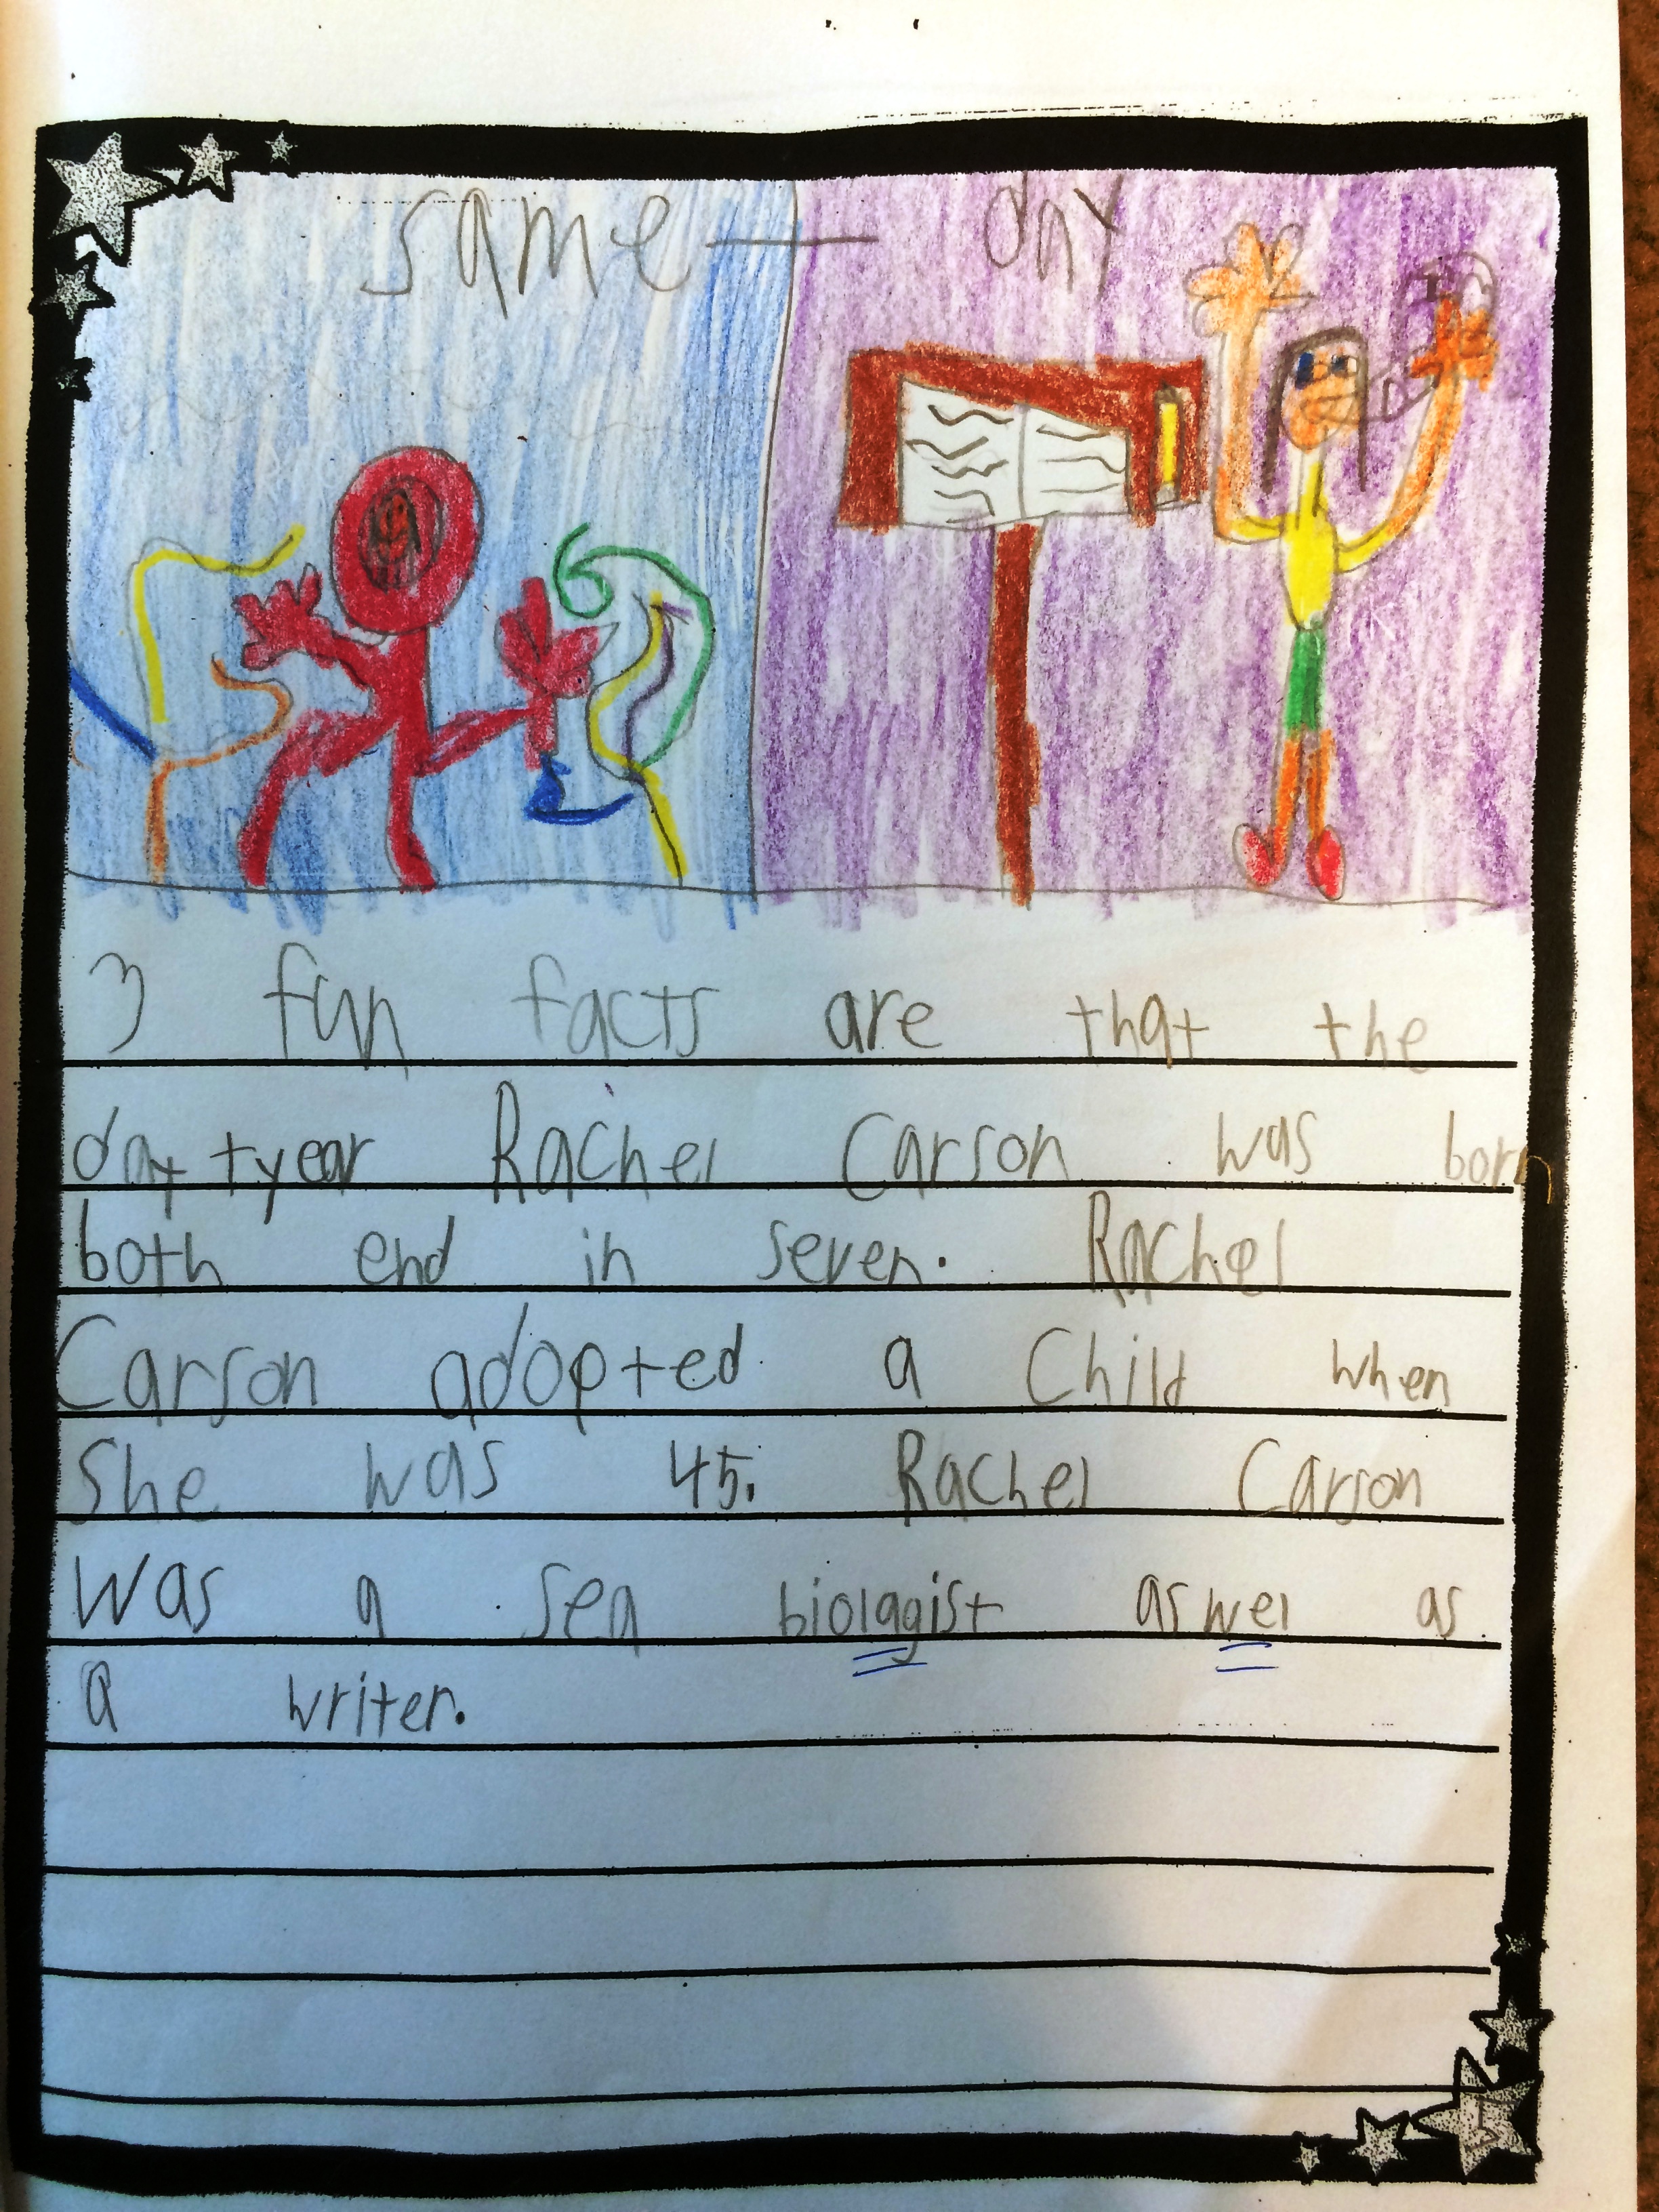 same — day
3 fun facts are that the
day + year Rachel Carson was born
both end in seven. Rachel
Carson adopted a Child when
She was 45. Rachel Carson
was a sea biolagist aswel as
a writer.
5